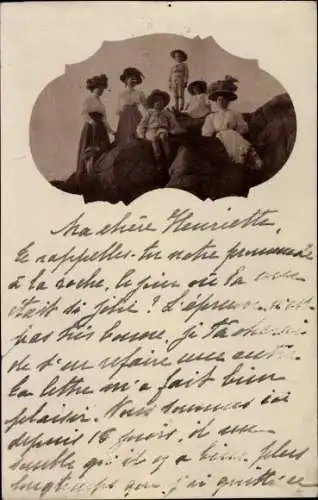 Ma chère Henriette,
te rappelles-tu notre promenade
à la roche, le jour où la mer
était si jolie? L'épreuve n'est
pas très bonne, je tâcherai
de s'en refaire une autre
Ta lettre m'a fait bien
plaisir. Nous sommes ici
depuis 18 jours, il me
semble qu'il y a bien plus
longtemps que j'ai quitté ce